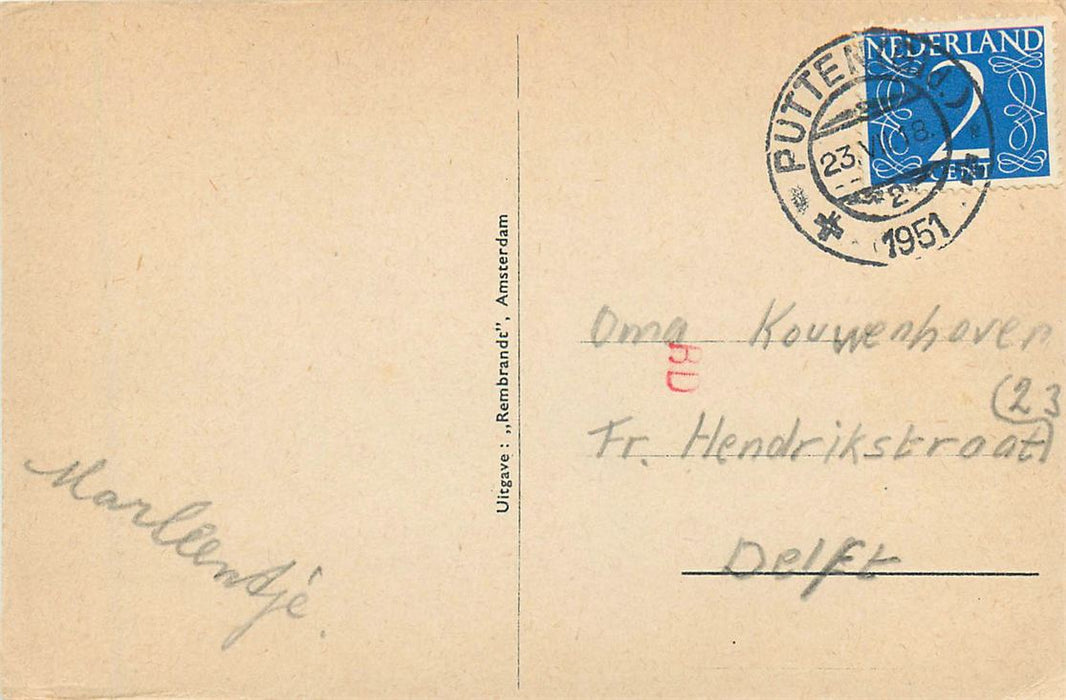 NEDERLAND
2
CENT
PUTTEN (Gld.)
23.VII.18.
2
1951
Oma Kouwenhoven
(23
Fr. Hendrikstraat)
Delft
RD
Uitgave: „Rembrandt”, Amsterdam
Marleentje.